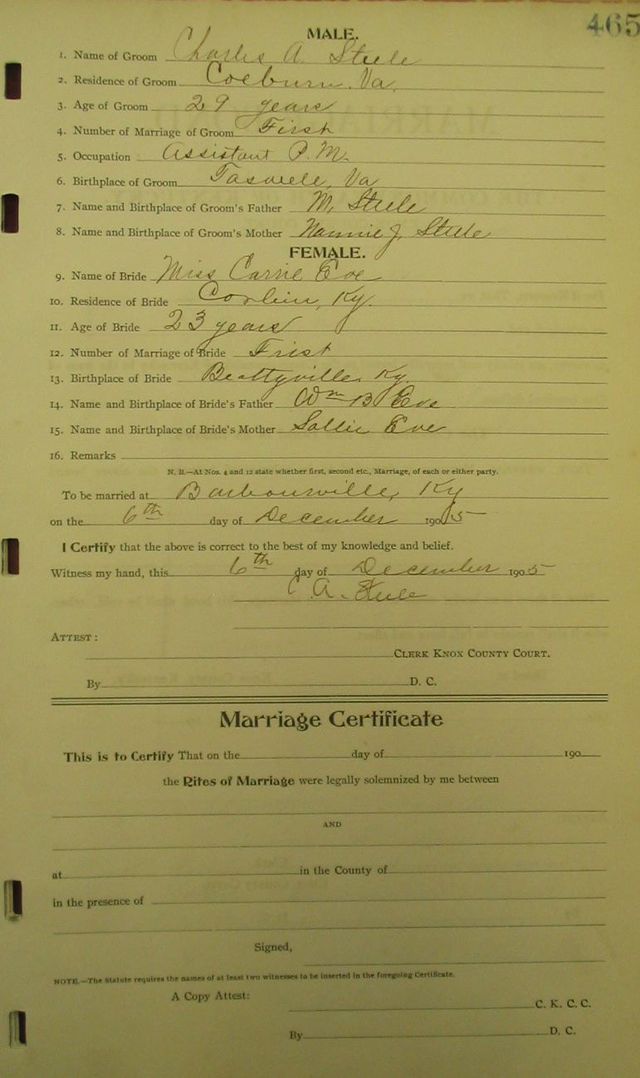 465
MALE.
1. Name of Groom Charles A. Steele
2. Residence of Groom Coeburn, Va.
3. Age of Groom 29 years
4. Number of Marriage of Groom First
5. Occupation Assistant P.M.
6. Birthplace of Groom Va
7. Name and Birthplace of Groom's Father M. Steele
8. Name and Birthplace of Groom's Mother Nannie J. Steele
FEMALE.
9. Name of Bride Miss Carrie Eve
10. Residence of Bride Corbin, Ky.
11. Age of Bride 23 years
12. Number of Marriage of Bride Frist
13. Birthplace of Bride Beattyville, Ky
14. Name and Birthplace of Bride's Father Wm B. Eve
15. Name and Birthplace of Bride's Mother Sallie Eve
16. Remarks
N. B.—At Nos. 4 and 12 state whether first, second etc., Marriage, of each or either party.
To be married at Barbourville, Ky
on the 6th day of December 1905
I Certify that the above is correct to the best of my knowledge and belief.
Witness my hand, this 6th day of December 1905
C. A. Steele
ATTEST:
CLERK KNOX COUNTY COURT.
By D. C.
Marriage Certificate
This is to Certify That on the day of 190
the Rites of Marriage were legally solemnized by me between
AND
at in the County of
in the presence of
Signed,
NOTE.—The Statute requires the names of at least two witnesses to be inserted in the foregoing Certificate.
A Copy Attest:
C. K. C. C.
By D. C.